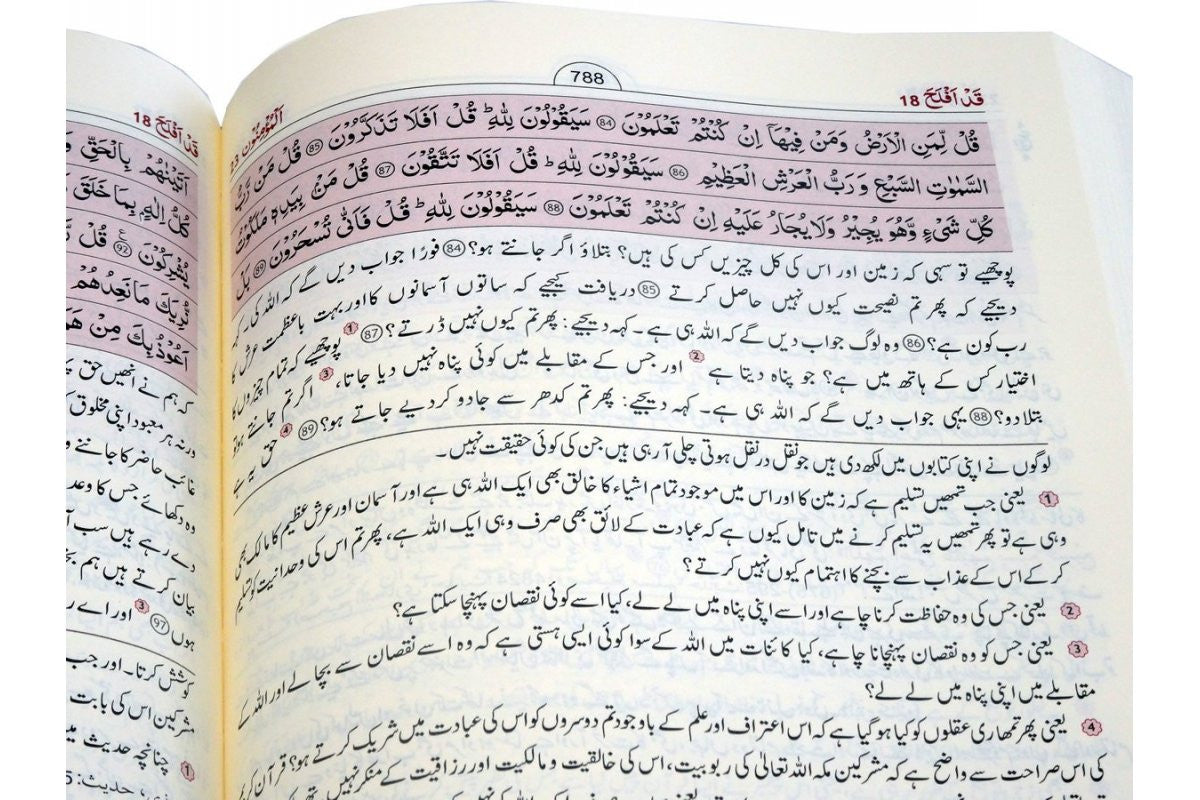 788
قَدْ اَفْلَحَ 18
اَلْمُؤْمِنُوْن 23
قُلْ لِّمَنِ الْاَرْضُ وَمَنْ فِيْهَآ اِنْ كُنْتُمْ تَعْلَمُوْنَ ﴿84﴾ سَيَقُوْلُوْنَ لِلّٰهِ ؕ قُلْ اَفَلَا تَذَكَّرُوْنَ ﴿85﴾ قُلْ مَنْ رَّبُّ
السَّمٰوٰتِ السَّبْعِ وَرَبُّ الْعَرْشِ الْعَظِيْمِ ﴿86﴾ سَيَقُوْلُوْنَ لِلّٰهِ ؕ قُلْ اَفَلَا تَتَّقُوْنَ ﴿87﴾ قُلْ مَنْۢ بِيَدِهٖ مَلَكُوْتُ
كُلِّ شَيْءٍ وَّهُوَ يُجِيْرُ وَلَا يُجَارُ عَلَيْهِ اِنْ كُنْتُمْ تَعْلَمُوْنَ ﴿88﴾ سَيَقُوْلُوْنَ لِلّٰهِ ؕ قُلْ فَاَنّٰى تُسْحَرُوْنَ ﴿89﴾ بَلْ
پوچھیے تو سہی کہ زمین اور اس کی کل چیزیں کس کی ہیں؟ بتلاؤ اگر جانتے ہو؟ (84) فورًا جواب دیں گے کہ اللہ کی۔ کہہ
دیجیے کہ پھر تم نصیحت کیوں نہیں حاصل کرتے (85) دریافت کیجیے کہ ساتوں آسمانوں کا اور بہت باعظمت عرش کا
رب کون ہے؟ (86) وہ لوگ جواب دیں گے کہ اللہ ہی ہے۔ کہہ دیجیے: پھر تم کیوں نہیں ڈرتے؟ 1 (87) پوچھیے کہ تمام چیزوں کا
اختیار کس کے ہاتھ میں ہے؟ جو پناہ دیتا ہے 2 اور جس کے مقابلے میں کوئی پناہ نہیں دیا جاتا، 3 اگر تم جانتے ہو تو
بتلا دو؟ (88) یہی جواب دیں گے کہ اللہ ہی ہے۔ کہہ دیجیے: پھر تم کدھر سے جادو کر دیے جاتے ہو؟ 4 (89) حق یہ ہے
لوگوں نے اپنی کتابوں میں لکھ دی ہیں جو نقل در نقل ہوتی چلی آ رہی ہیں جن کی کوئی حقیقت نہیں۔
1 یعنی جب تمھیں تسلیم ہے کہ زمین کا اور اس میں موجود تمام اشیاء کا خالق بھی ایک اللہ ہی ہے اور آسمان اور عرش عظیم کا مالک بھی
وہی ہے تو پھر تمھیں یہ تسلیم کرنے میں تامل کیوں ہے کہ عبادت کے لائق بھی صرف وہی ایک اللہ ہے، پھر تم اس کی وحدانیت کو تسلیم
کر کے اس کے عذاب سے بچنے کا اہتمام کیوں نہیں کرتے؟
2 یعنی جس کی وہ حفاظت کرنا چاہے اور اسے اپنی پناہ میں لے لے، کیا اسے کوئی نقصان پہنچا سکتا ہے؟
3 یعنی جس کو وہ نقصان پہنچانا چاہے، کیا کائنات میں اللہ کے سوا کوئی ایسی ہستی ہے کہ وہ اسے نقصان سے بچا لے اور اللہ کے
مقابلے میں اپنی پناہ میں لے لے؟
4 یعنی پھر تمھاری عقلوں کو کیا ہو گیا ہے کہ اس اعتراف اور علم کے باوجود تم دوسروں کو اس کی عبادت میں شریک کرتے ہو؟ قرآن کریم
کی اس صراحت سے واضح ہے کہ مشرکین مکہ اللہ تعالیٰ کی ربوبیت، اس کی خالقیت و مالکیت اور رزاقیت کے منکر نہیں تھے
قَدْ اَفْلَحَ 18
اَتَيْنٰهُمْ بِالْحَقِّ
كُلُّ اِلٰهٍۭ بِمَا خَلَقَ
يُشْرِكُوْنَ ﴿92﴾ قُلْ
تُرِيَنِّيْ
اَعُوْذُ بِكَ مِنْ
کہ ہم نے انھیں حق
ورنہ ہر معبود اپنی مخلوق
غائب حاضر کا جاننے
وہ دکھائے جس کا وعدہ
دے رہے ہیں سب
بیان کرتے ہیں ہم
ہوں (97) 3 اور اے
کوشش کرتا۔ اور جب
مشرکین اس کی بابت
1 چنانچہ حدیث میں
حدیث: